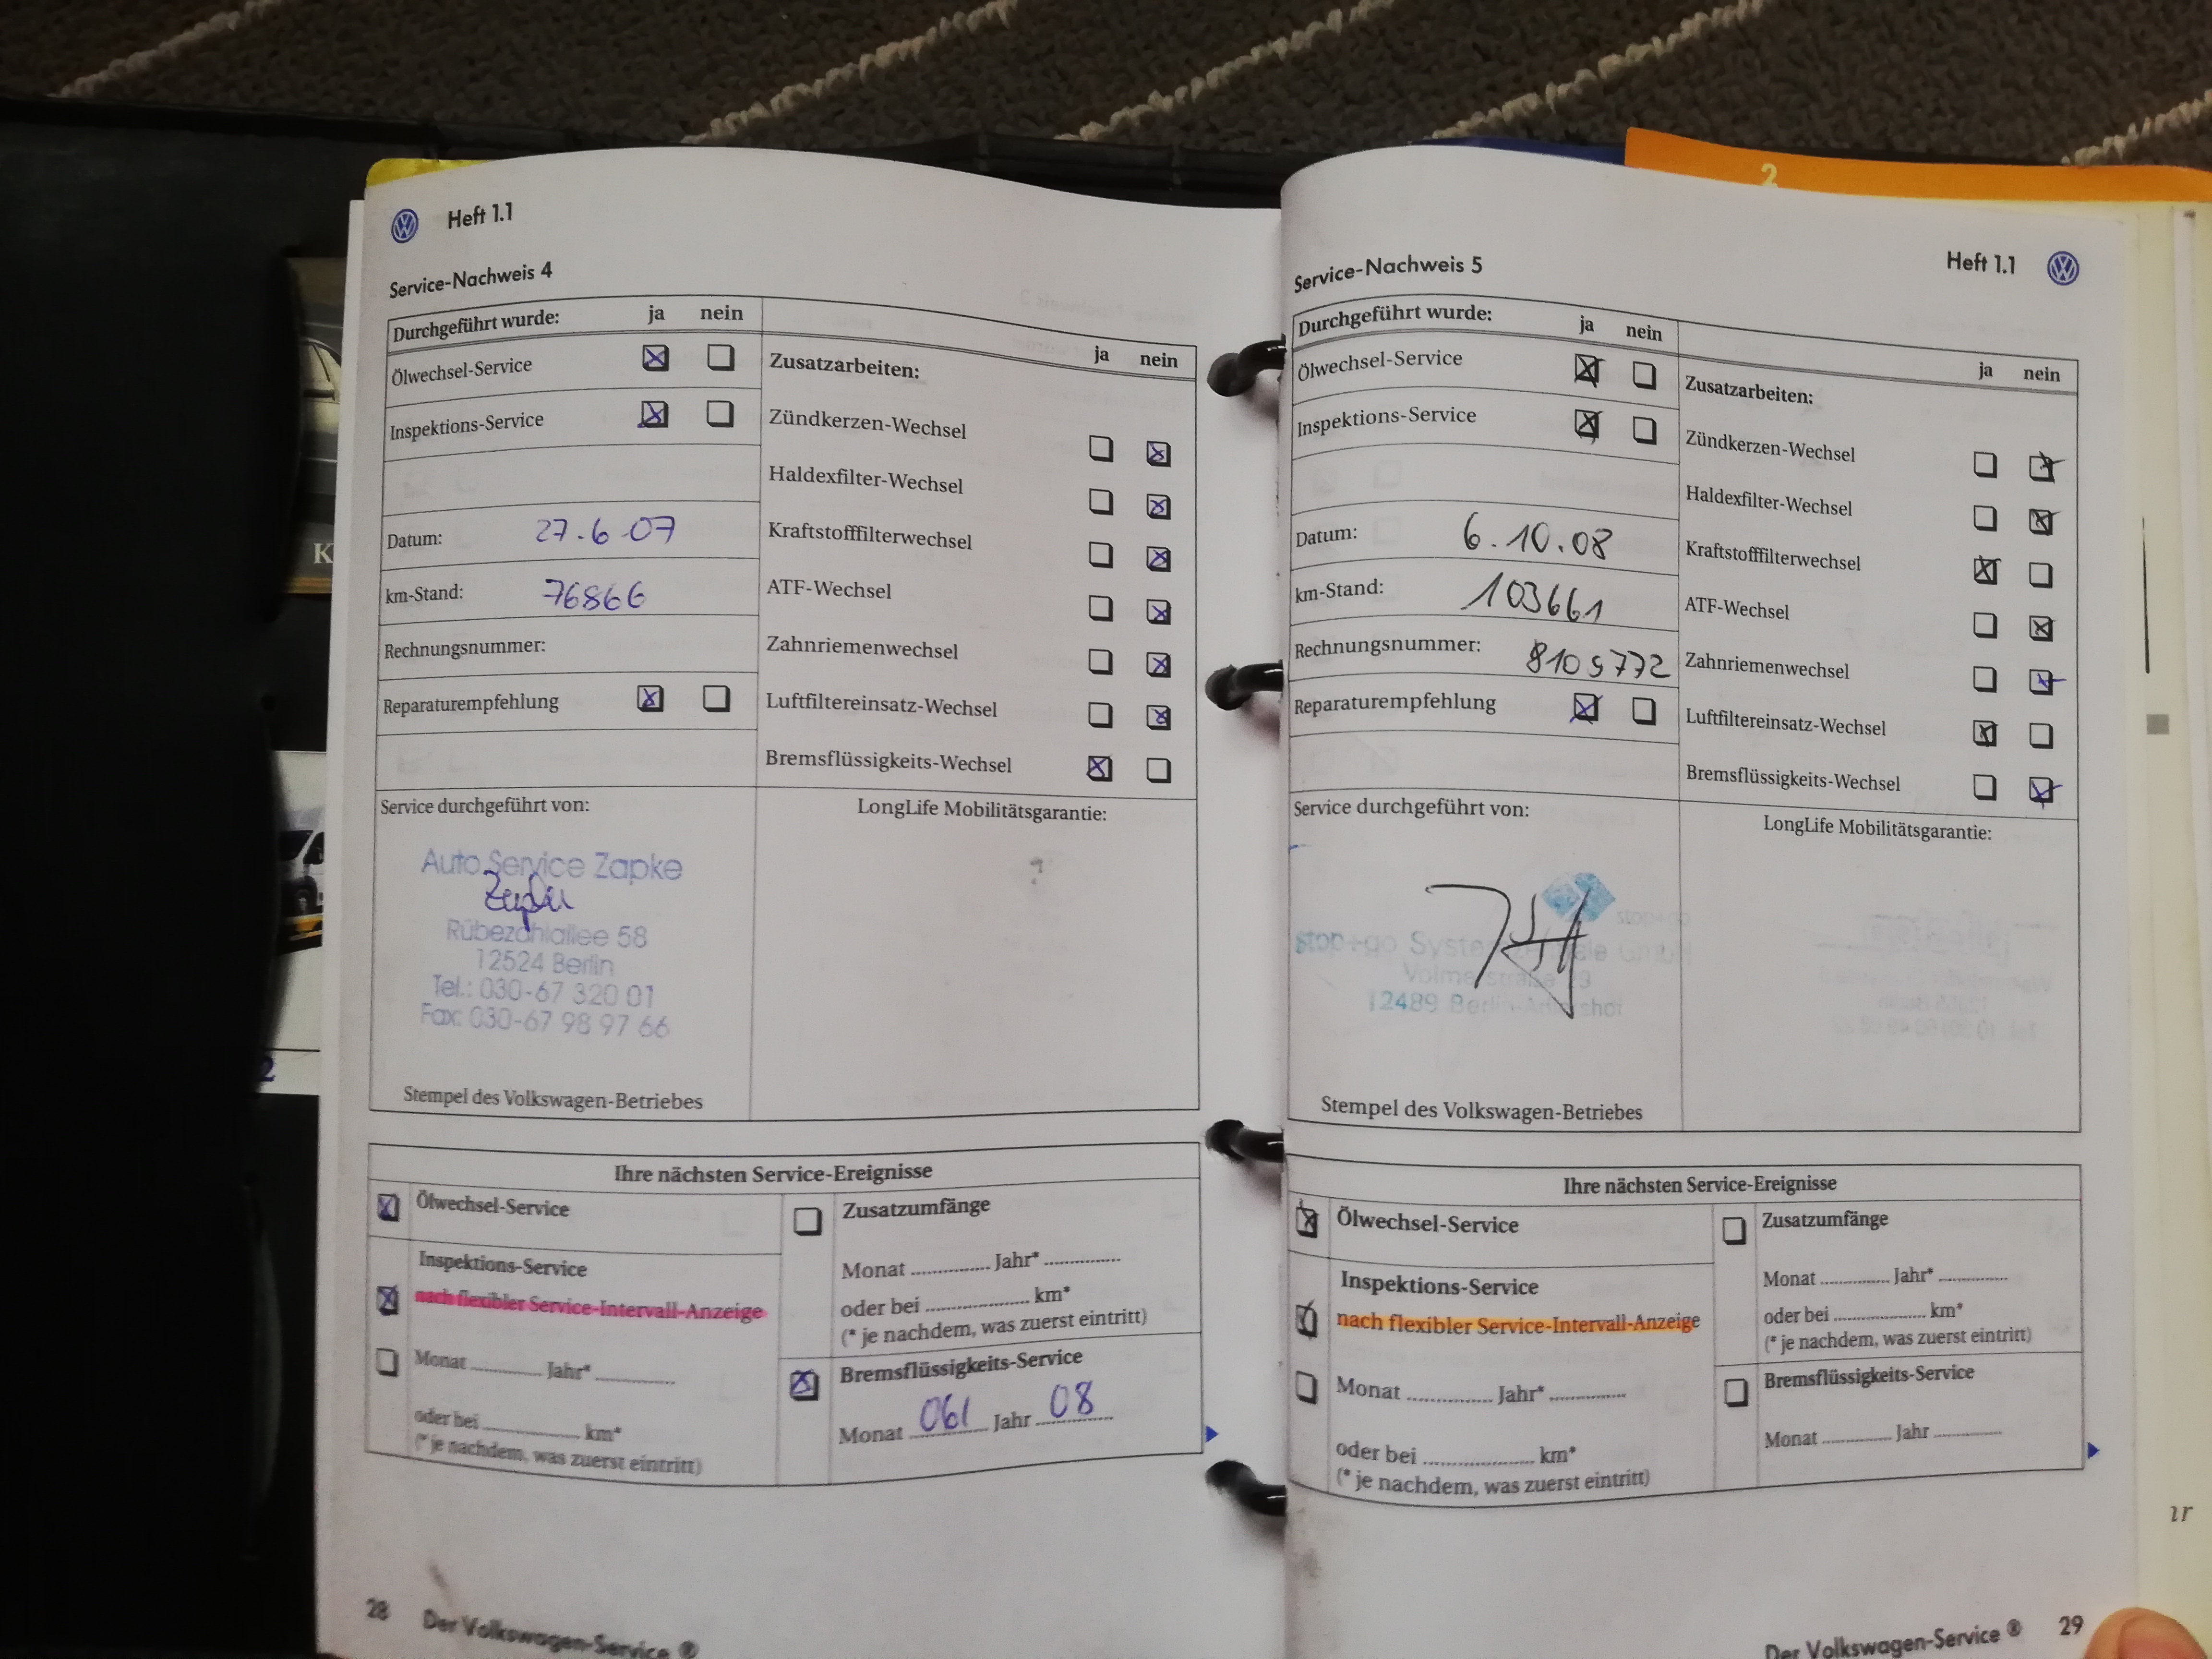 Heft 1.1
Service-Nachweis 4
Durchgeführt wurde: ja nein
Ölwechsel-Service
Inspektions-Service
Datum: 27.6.07
km-Stand: 76866
Rechnungsnummer:
Reparaturempfehlung
ja nein
Zusatzarbeiten:
Zündkerzen-Wechsel
Haldexfilter-Wechsel
Kraftstofffilterwechsel
ATF-Wechsel
Zahnriemenwechsel
Luftfiltereinsatz-Wechsel
Bremsflüssigkeits-Wechsel
Service durchgeführt von:
Auto Service Zapke
Rübezahlallee 58
12524 Berlin
Tel.: 030-67 320 01
Fax: 030-67 98 97 66
Stempel des Volkswagen-Betriebes
LongLife Mobilitätsgarantie:
Ihre nächsten Service-Ereignisse
Ölwechsel-Service
Inspektions-Service
nach flexibler Service-Intervall-Anzeige
Monat ............ Jahr* ............
oder bei ............ km*
(* je nachdem, was zuerst eintritt)
Zusatzumfänge
Monat ............ Jahr* ............
oder bei ............ km*
(* je nachdem, was zuerst eintritt)
Bremsflüssigkeits-Service
Monat 06/ Jahr 08
28 Der Volkswagen-Service ®
2
Heft 1.1
Service-Nachweis 5
Durchgeführt wurde: ja nein
Ölwechsel-Service
Inspektions-Service
Datum: 6.10.08
km-Stand: 103661
Rechnungsnummer: 8109772
Reparaturempfehlung
ja nein
Zusatzarbeiten:
Zündkerzen-Wechsel
Haldexfilter-Wechsel
Kraftstofffilterwechsel
ATF-Wechsel
Zahnriemenwechsel
Luftfiltereinsatz-Wechsel
Bremsflüssigkeits-Wechsel
Service durchgeführt von:
stop+go
stop+go GmbH
12489 Berlin
Stempel des Volkswagen-Betriebes
LongLife Mobilitätsgarantie:
Ihre nächsten Service-Ereignisse
Ölwechsel-Service
Inspektions-Service
nach flexibler Service-Intervall-Anzeige
Monat ............ Jahr* ............
oder bei ............ km*
(* je nachdem, was zuerst eintritt)
Zusatzumfänge
Monat ............ Jahr* ............
oder bei ............ km*
(* je nachdem, was zuerst eintritt)
Bremsflüssigkeits-Service
Monat ............ Jahr ............
Der Volkswagen-Service ® 29